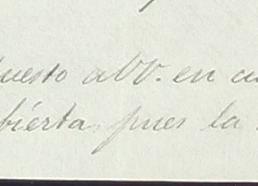 uesto a VV. en cu
bierta, pues la